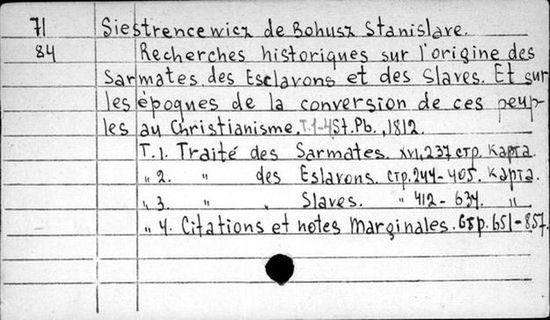 71 Siestrencewicz de Bohusz Stanislave.
84 Recherches historiques sur l'origine des
Sarmates, des Esclavons et des Slaves. Et sur
les époques de la conversion de ces peup-
les au Christianisme. T.1-4 St.Pb., 1812.
T.1. Traité des Sarmates. XVI, 237 стр. карта.
„ 2. „ des Eslavons. стр. 244-405. карта.
„ 3. „ „ Slaves. „ 412-634. „
„ 4. Citations et notes Marginales. Стр. 651-857.